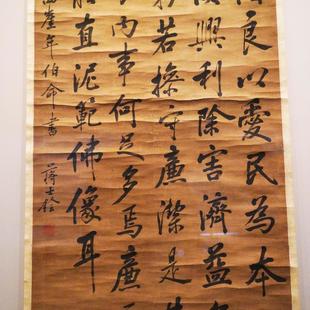 良以愛民為本
興利除害濟益
若操守廉潔是
內事何足多焉廉
直泥範佛像耳
崖年伯命書
蔣士銓